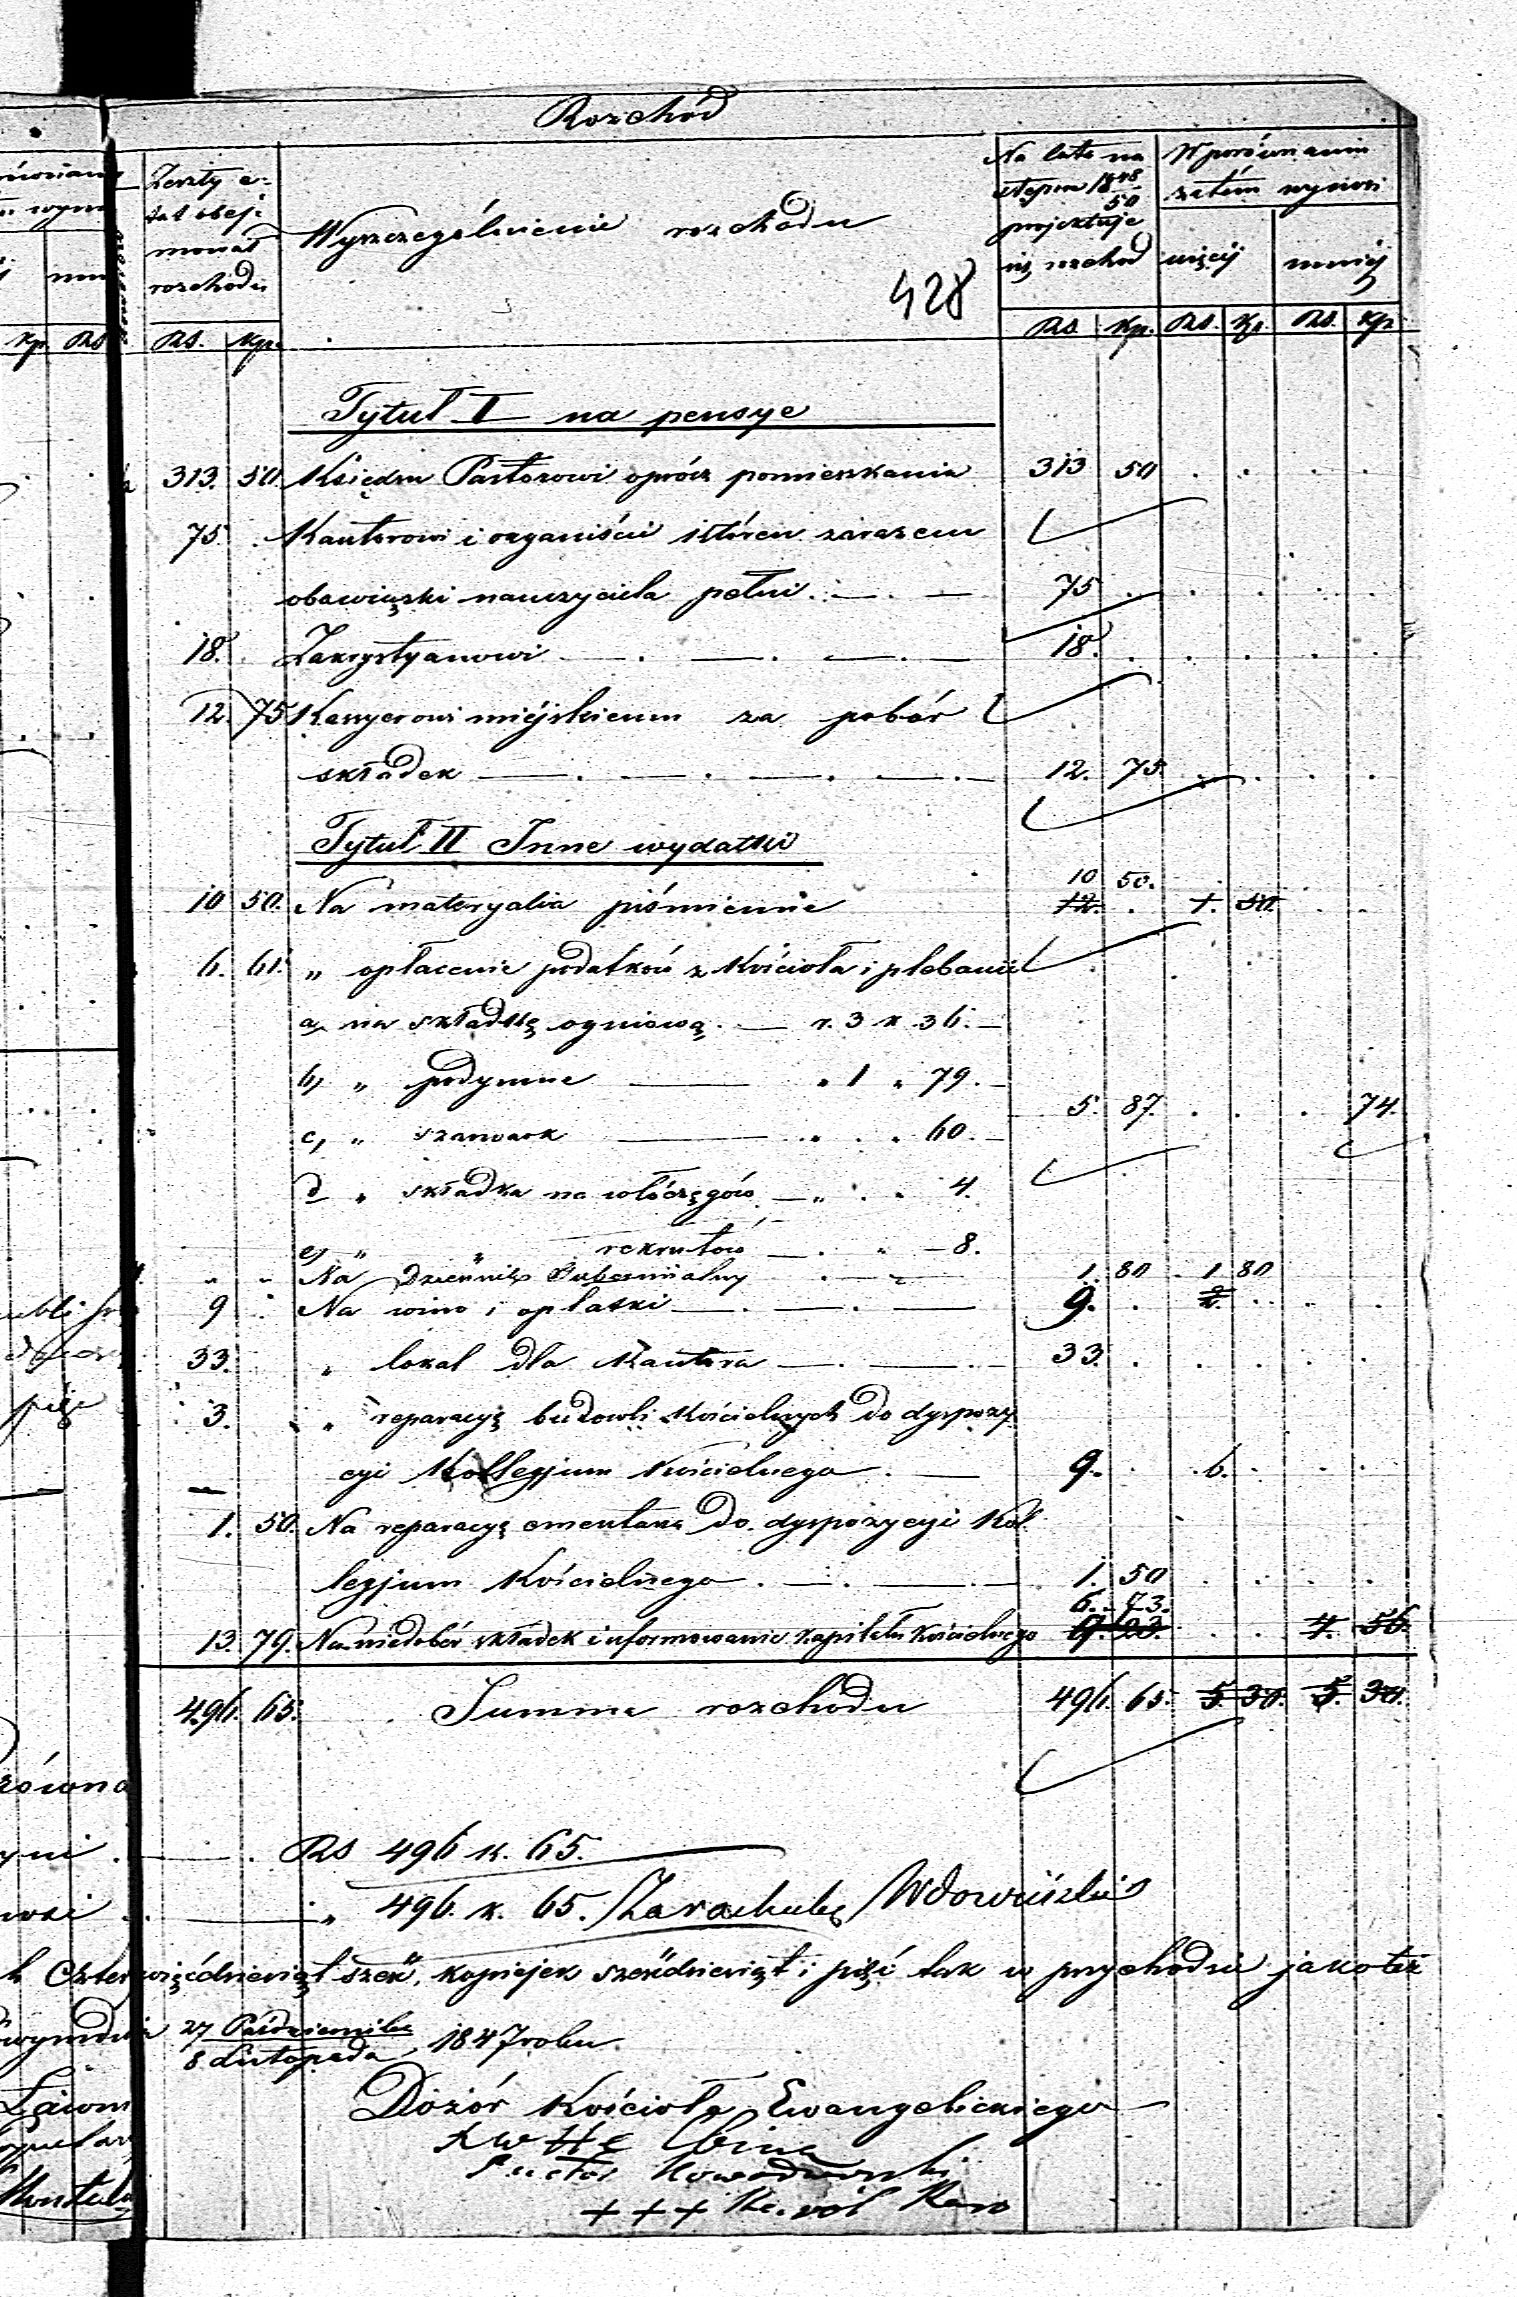 Rozchód
Zeszły e-
tat obej-
mował
rozchodu
Wyszczególnienie rozchodu
428
Na lata na
stępne 1848/50
projektuje
się rozchód
W porównaniu
zatém wynosi
więcéj
mniéj
Kp. Rs. Rs. Kp. Rs. Kp. Rs. Kp. Rs. Kp.
Tytuł I na pensye
313. 50. Księdzu Pastorowi oprócz pomieszkania 313 50
75. Kantorowi i organiście któren zarazem
obowiązki nauczyciela pełni 75
18. Zakrystyanowi 18.
12. 75 Kassyerowi miéjskiemu za pobór
składek 12. 75.
Tytuł II Inne wydatki
10 50.
10 50. Na materyalia piśmienne 12. 1. 50.
6. 61. „ opłacenie podatków z Kościoła i plebanii
a, na składkę ogniową r. 3 k 36.
b, „ podymne „ 1 „ 79.
5. 87. 74.
c, „ szarwark „ . „ 60.
d „ składka na włóczęgów „ . „ 4.
e, „ „ rekrutów . „ 8.
„ „ Na Dziennik Gubernialny 1. 80 1 80
9 Na wino i opłatki 9. 2.
33. „ lokal dla Kantora 33.
3. „ reparacyę budowli Kościelnych do dyspozy
cyi Kollegjum Kościelnego 9. 6.
1. 50. Na reparacyę cmentarza do dyspozycyi Kol
legjum Kościelnego 1. 50
6. 73.
13. 79. Na niedobór składek i uformowanie kapitału Kościelnego 9. 23. 4. 56.
496. 65. Summa rozchodu 496. 65. 5. 30. 5. 30.
Rs 496 k. 65.
„ 496. k. 65.
Czterysta dziewięćdziesiąt sześć, kopiejek sześćdziesiąt i pięć tak w przychodzie jakoteż
27 Października
8 Listopada 1847 roku
Dozór Kościoła Ewangelickiego
+ + + Karol